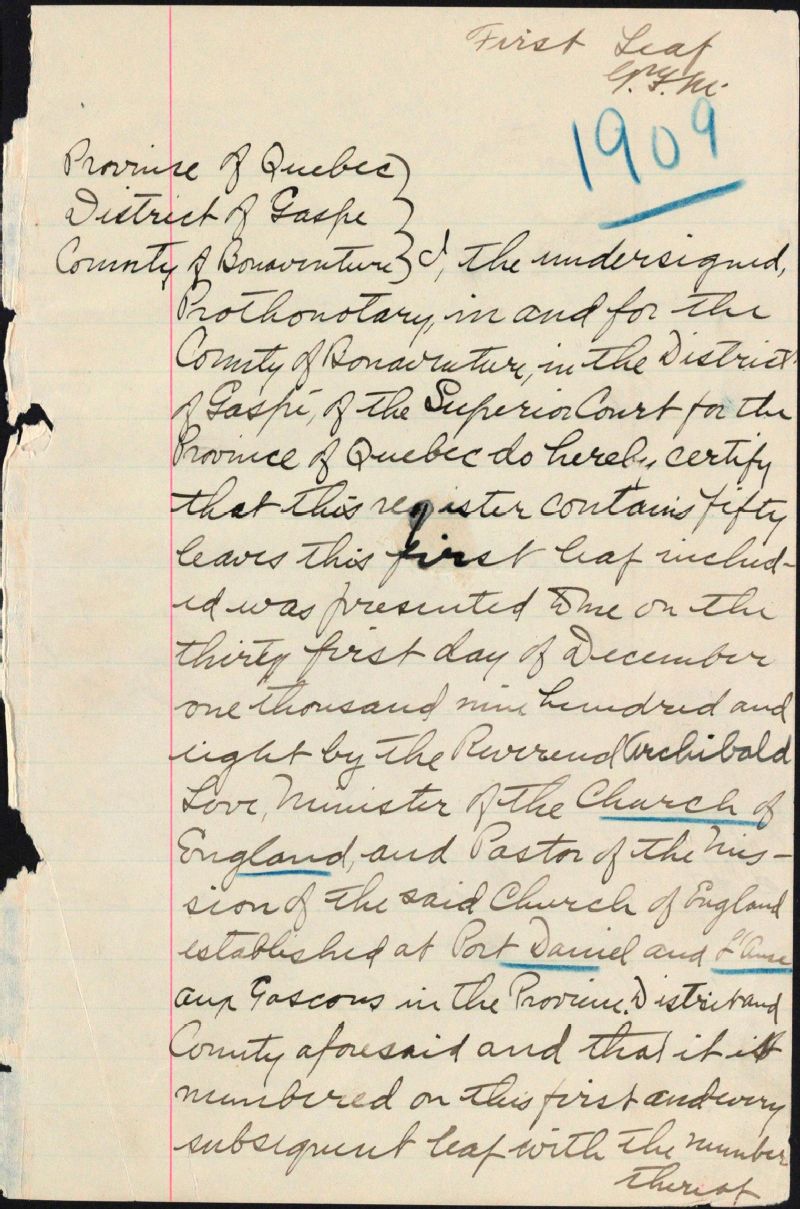 First Leaf
1909
Province of Quebec)
District of Gaspe )
County of Bonaventure) I, the undersigned,
Prothonotary, in and for the
County of Bonaventure, in the District
of Gaspé, of the Superior Court for the
Province of Quebec do hereby certify
that this register contains fifty
leaves this first leaf includ-
ed was presented to me on the
thirty first day of December
one thousand nine hundred and
eight by the Reverend Archibald
Love, Minister of the Church of
England, and Pastor of the Mis-
sion of the said Church of England
established at Port Daniel and L'Anse
aux Gascons in the Province, District and
County aforesaid and that it is
numbered on this first and every
subsequent leaf with the number
thereof